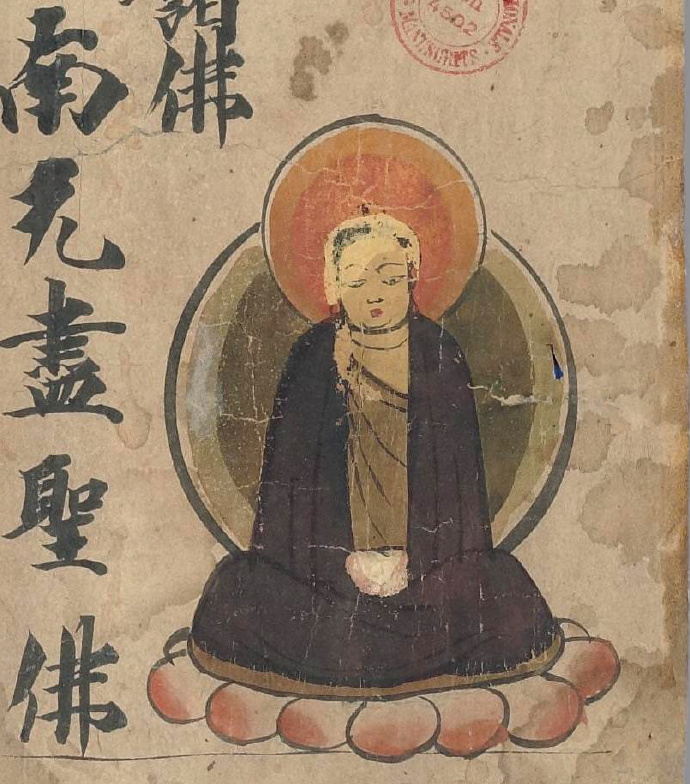 佛
南无盡聖佛
4502
MANUSCRITS